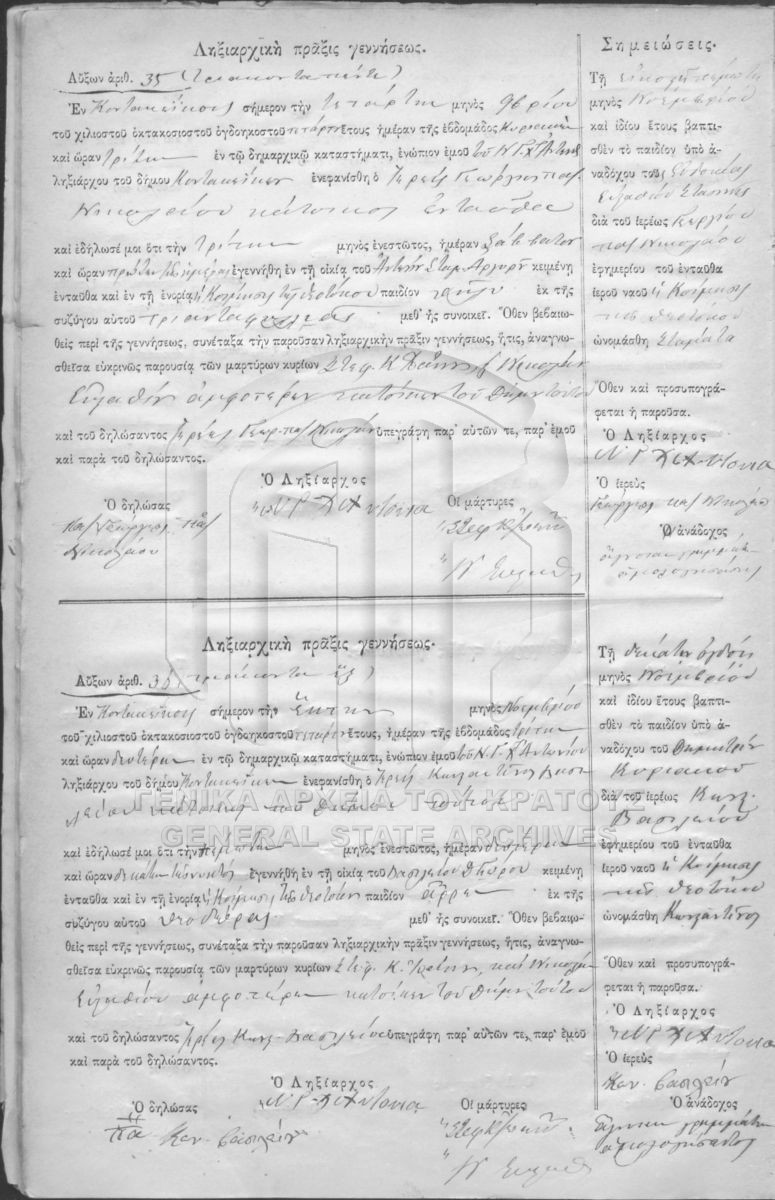 Ληξιαρχικὴ πρᾶξις γεννήσεως.
Αὔξων ἀριθ. 35 (τριακονταπέντε)
Ἐν σήμερον τὴν τετάρτην μηνὸς 9βρίου
τοῦ χιλιοστοῦ ὀκτακοσιοστοῦ ὀγδοηκοστοῦ τετάρτου ἔτους ἡμέραν τῆς ἑβδομάδος Κυριακὴν
καὶ ὥραν τρίτην ἐν τῷ δημαρχικῷ καταστήματι, ἐνώπιον ἐμοῦ τοῦ Ν. Γ.
ληξιάρχου τοῦ δήμου ἐνεφανίσθη ὁ Ἱερεὺς Γεώργιος παπ.
Νικολάου κάτοικος ἐνταῦθα
καὶ ἐδήλωσέ μοι ὅτι τὴν τρίτην μηνὸς ἐνεστῶτος, ἡμέραν Σάββατον
καὶ ὥραν πρώτην τῆς ἡμέρας ἐγεννήθη ἐν τῇ οἰκίᾳ τοῦ κειμένῃ
ἐνταῦθα καὶ ἐν τῇ ἐνορίᾳ ἡ Κοίμησις τῆς Θεοτόκου παιδίον θῆλυ ἐκ τῆς
συζύγου αὐτοῦ Τριανταφυλλιᾶς μεθ' ἧς συνοικεῖ. Ὅθεν βεβαιω-
θεὶς περὶ τῆς γεννήσεως, συνέταξα τὴν παροῦσαν ληξιαρχικὴν πρᾶξιν γεννήσεως, ἥτις, ἀναγνω-
σθεῖσα εὐκρινῶς παρουσίᾳ τῶν μαρτύρων κυρίων Στεφ. Κ. Νικολάου
ἀμφοτέρων κατοίκων τοῦ Δήμου τούτου
καὶ τοῦ δηλώσαντος Ἱερέως Γεωρ. παπ Νικολάου ὑπεγράφη παρ' αὐτῶν τε, παρ' ἐμοῦ
καὶ παρὰ τοῦ δηλώσαντος.
Ὁ Ληξίαρχος
Ν. Γ.
Ὁ δηλώσας
Γεώργιος
Νικολάου
Οἱ μάρτυρες
Σημειώσεις.
Τῇ
μηνὸς Νοεμβρίου
καὶ ἰδίου ἔτους βαπτι-
σθὲν τὸ παιδίον ὑπὸ ἀ-
ναδόχου τοῦ
διὰ τοῦ ἱερέως Γεωργίου
παπ Νικολάου
ἐφημερίου τοῦ ἐνταῦθα
ἱεροῦ ναοῦ ἡ Κοίμησις
τῆς Θεοτόκου
ὠνομάσθη Σταμάτα
Ὅθεν καὶ προσυπογρά-
φεται ἡ παροῦσα.
Ὁ Ληξίαρχος
Ὁ ἱερεὺς
Γεώργιος παπ Νικολάου
Ὁ ἀνάδοχος
Ληξιαρχικὴ πρᾶξις γεννήσεως.
Αὔξων ἀριθ. 36 (τριάκοντα ἕξ)
Ἐν σήμερον τὴν ἕκτην μηνὸς Νοεμβρίου
τοῦ χιλιοστοῦ ὀκτακοσιοστοῦ ὀγδοηκοστοῦ τετάρτου ἔτους, ἡμέραν τῆς ἑβδομάδος τρίτην
καὶ ὥραν δευτέραν ἐν τῷ δημαρχικῷ καταστήματι, ἐνώπιον ἐμοῦ τοῦ Ν. Γ. Χ'' Ἀντωνίου
ληξιάρχου τοῦ δήμου ἐνεφανίσθη ὁ Ἱερεὺς Κωνσταντῖνος Βασι-
λείου κάτοικος τοῦ Δήμου τούτου
καὶ ἐδήλωσέ μοι ὅτι τὴν πέμπτην μηνὸς ἐνεστῶτος, ἡμέραν δευτέραν
καὶ ὥραν δεκάτην τῆς νυκτὸς ἐγεννήθη ἐν τῇ οἰκίᾳ τοῦ Βασιλείου κειμένῃ
ἐνταῦθα καὶ ἐν τῇ ἐνορίᾳ ἡ Κοίμησις τῆς Θεοτόκου παιδίον ἄρρεν ἐκ τῆς
συζύγου αὐτοῦ Θεοδώρας μεθ' ἧς συνοικεῖ. Ὅθεν βεβαιω-
θεὶς περὶ τῆς γεννήσεως, συνέταξα τὴν παροῦσαν ληξιαρχικὴν πρᾶξιν γεννήσεως, ἥτις, ἀναγνω-
σθεῖσα εὐκρινῶς παρουσίᾳ τῶν μαρτύρων κυρίων Στεφ. Κ. καὶ Νικολάου
ἀμφοτέρων κατοίκων τοῦ Δήμου τούτου
καὶ τοῦ δηλώσαντος Ἱερέως Κωνσ. Βασιλείου ὑπεγράφη παρ' αὐτῶν τε, παρ' ἐμοῦ
καὶ παρὰ τοῦ δηλώσαντος.
Ὁ Ληξίαρχος
Ὁ δηλώσας
Κων. Βασιλείου
Οἱ μάρτυρες
Τῇ δεκάτῃ ὀγδόῃ
μηνὸς Νοεμβρίου
καὶ ἰδίου ἔτους βαπτι-
σθὲν τὸ παιδίον ὑπὸ ἀ-
ναδόχου τοῦ Δημητρίου
Κυριακοῦ
διὰ τοῦ ἱερέως Κων.
Βασιλείου
ἐφημερίου τοῦ ἐνταῦθα
ἱεροῦ ναοῦ ἡ Κοίμησις
τῆς Θεοτόκου
ὠνομάσθη Κωνσταντῖνος
Ὅθεν καὶ προσυπογρά-
φεται ἡ παροῦσα.
Ὁ Ληξίαρχος
Ὁ ἱερεὺς
Κων. Βασιλείου
Ὁ ἀνάδοχος
ΓΕΝΙΚΑ ΑΡΧΕΙΑ ΤΟΥ ΚΡΑΤΟΥΣ
GENERAL STATE ARCHIVES